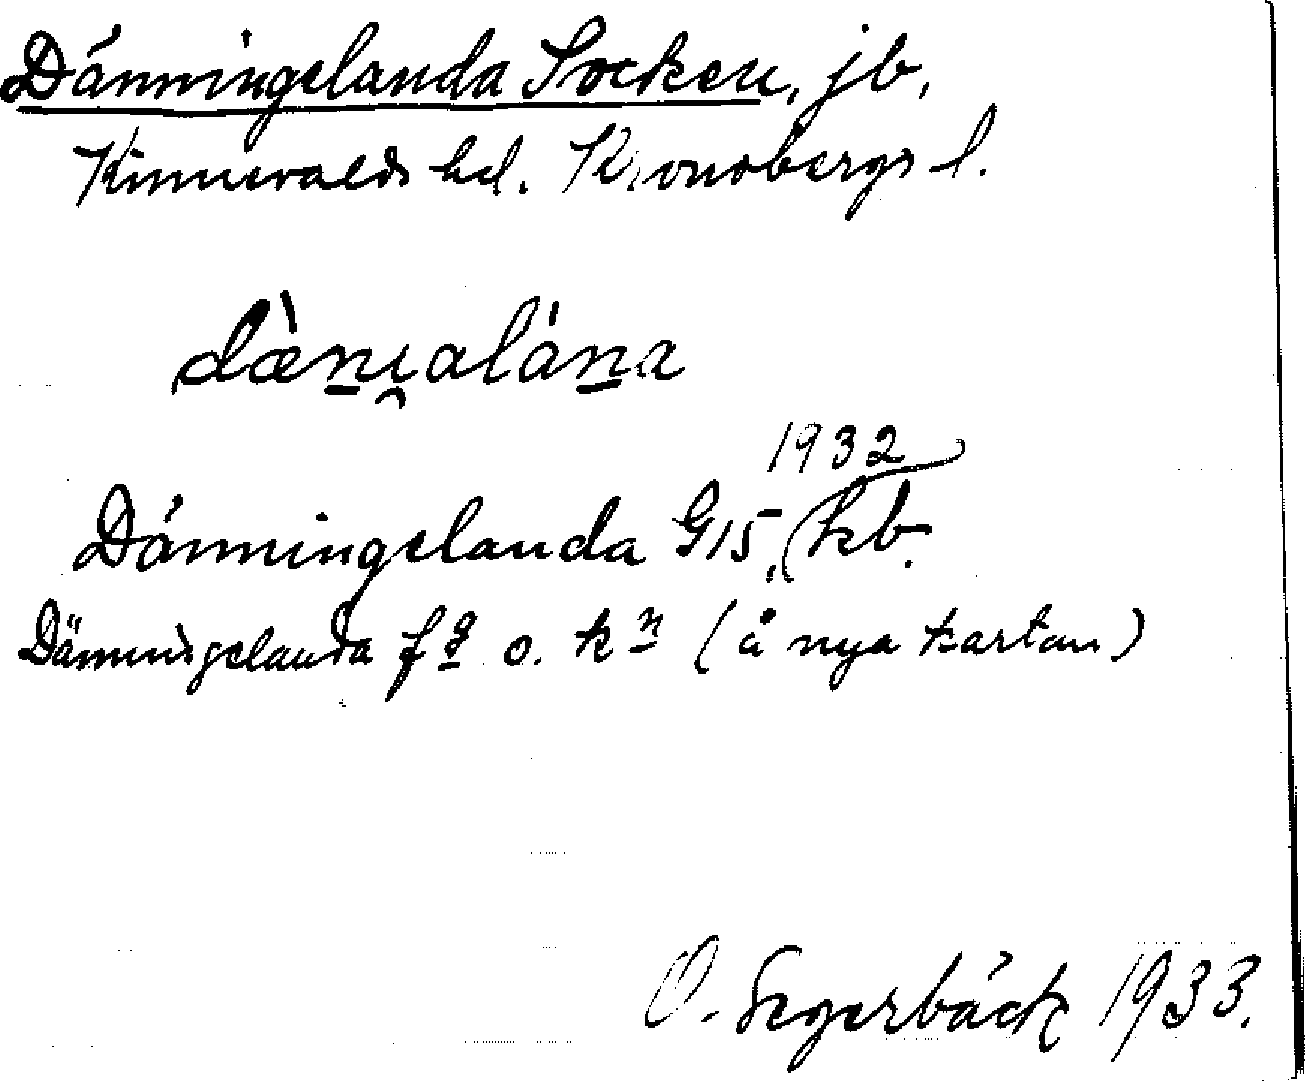 Dänningelanda Socken, jb,
Kinnevalds hd. Kronobergs l.
dæ̀n̠ɩ̯alán̠a
1932
Dänningelanda G15, kb.
Dänningelanda fg o. kn (å nya kartan)
O. Segerbäck 1933.